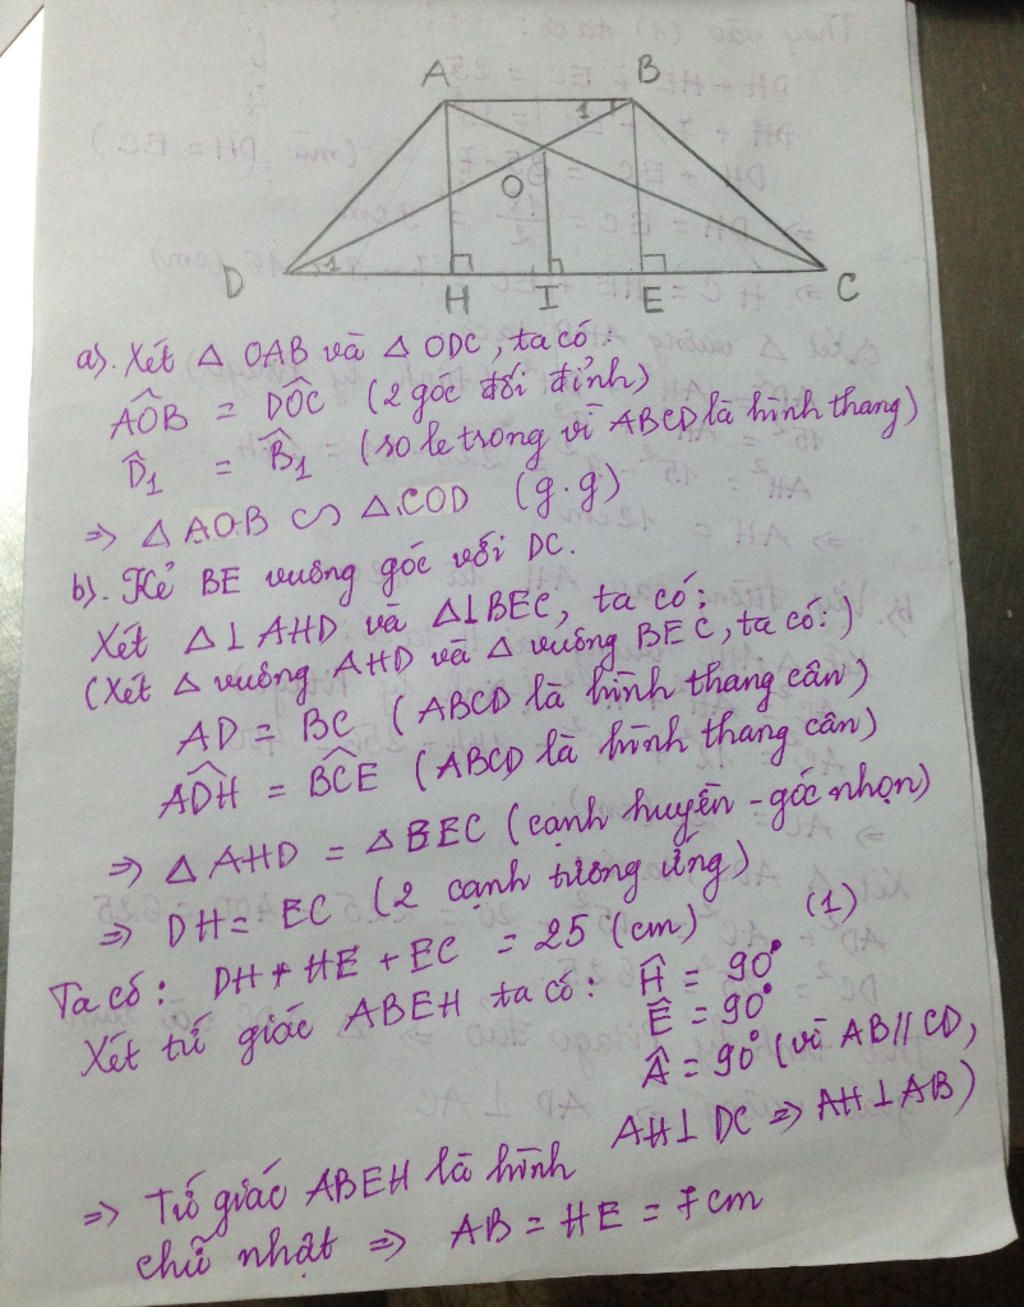 A B
1
O
D 1 H I E C
a). Xét △ OAB và △ ODC, ta có:
AÔB = DÔC (2 góc đối đỉnh)
D̂₁ = B̂₁ (so le trong vì ABCD là hình thang)
⇒ △ AOB ∽ △ COD (g.g)
b). Kẻ BE vuông góc với DC.
Xét △⊥ AHD và △⊥BEC, ta có:
(Xét △ vuông AHD và △ vuông BEC, ta có:)
AD = BC (ABCD là hình thang cân)
AD̂H = BĈE (ABCD là hình thang cân)
⇒ △ AHD = △ BEC (cạnh huyền - góc nhọn)
⇒ DH = EC (2 cạnh tương ứng)
Ta có: DH + HE + EC = 25 (cm) (1)
Xét tứ giác ABEH ta có: Ĥ = 90°
Ê = 90°
Â = 90° (vì AB//CD,
AH⊥ DC ⇒ AH⊥AB)
⇒ Tứ giác ABEH là hình
chữ nhật ⇒ AB = HE = 7cm